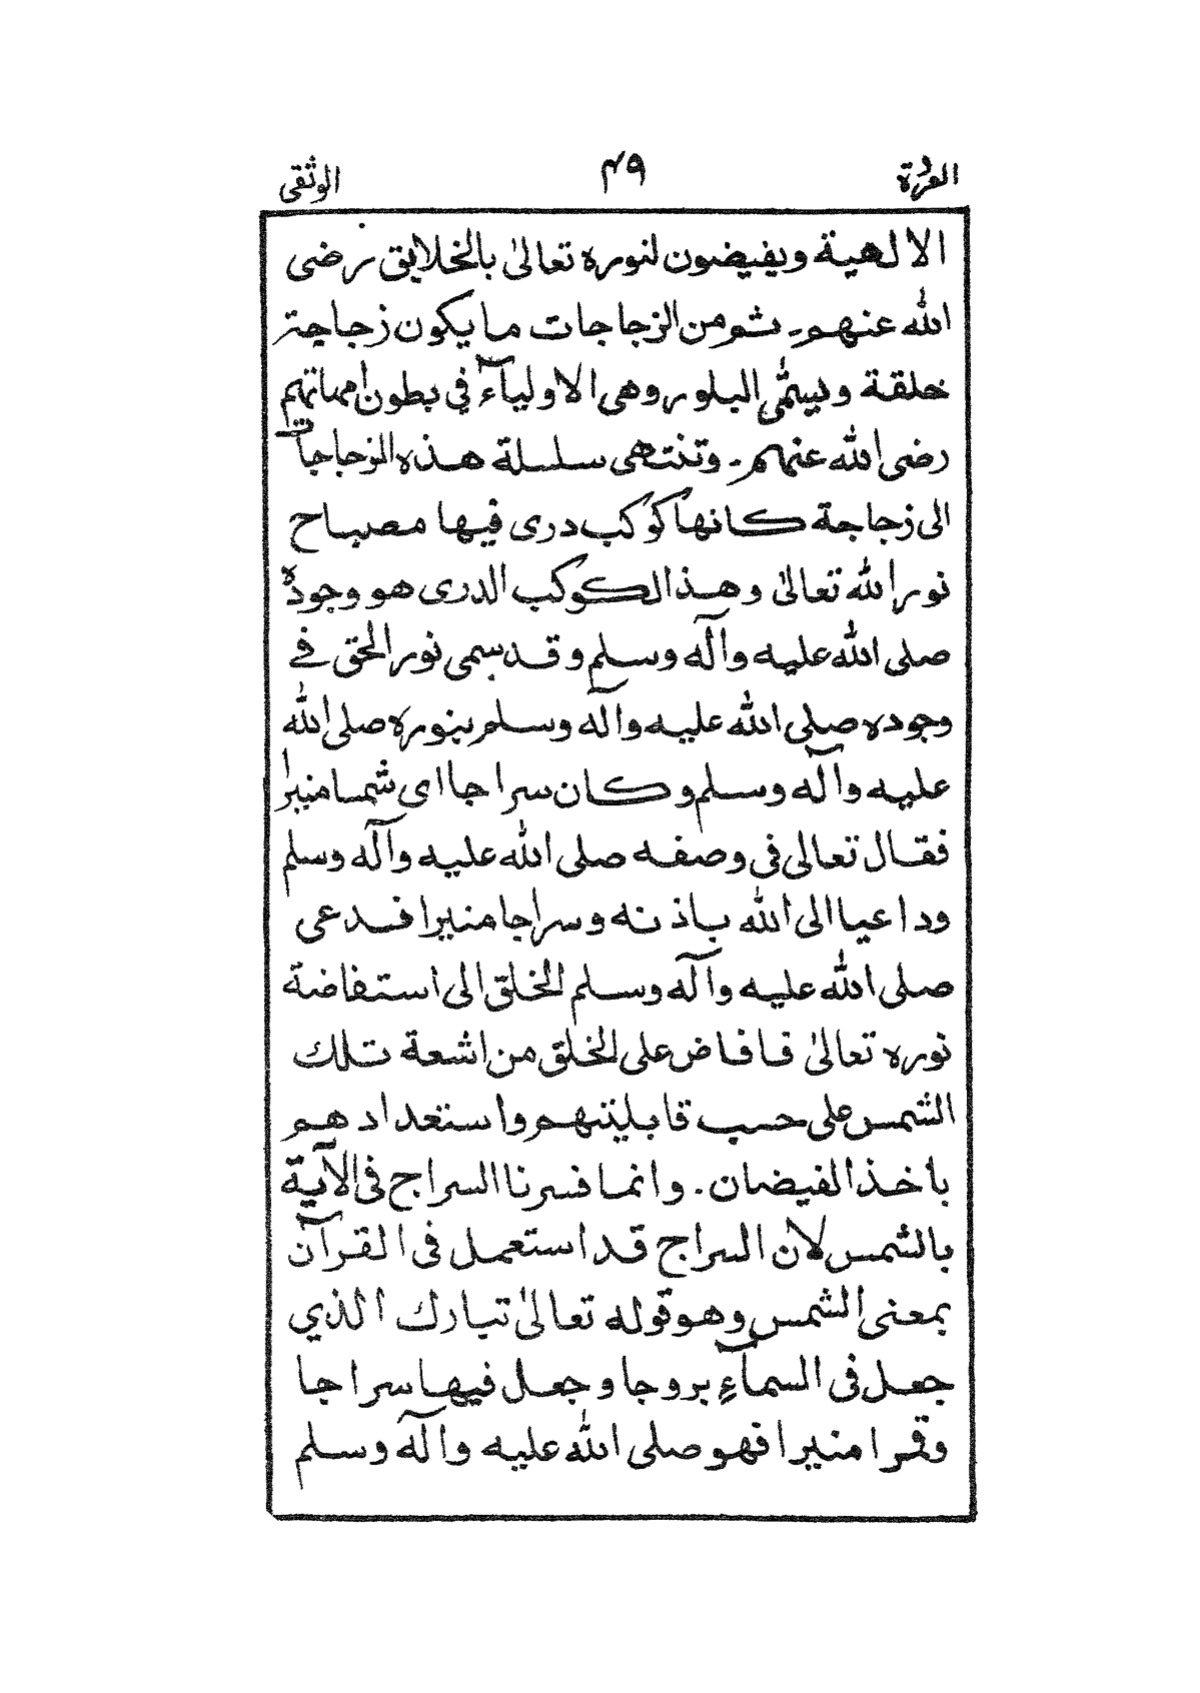 العروة ۴۹ الوثقى
الالهية ويفيضون لنوره تعالىٰ بالخلايق رضى
الله عنهم۔ ثم من الزجاجات ما يكون زجاجته
خلقة ويسمّى البلور وهى الاولياۤء في بطون امهاتهم
رضى الله عنهم۔ وتنتهى سلسلة هذه الزجاجات
الى زجاجة كانها كوكب درى فيها مصباح
نور الله تعالىٰ وهذا الكوكب الدرى هو وجوده
صلى الله عليه وآله وسلم وقد سمى نور الحق فے
وجوده صلى الله عليه وآله وسلم بنوره صلى الله
عليه وآله وسلم وكان سراجا اى شمسا منيرا
فقال تعالى فى وصفه صلى الله عليه وآله وسلم
وداعيا الى الله باذنه وسراجا منيرا فدعى
صلى الله عليه وآله وسلم الخلق الى استفاضة
نوره تعالىٰ فافاض على الخلق من اشعة تلك
الشمس على حسب قابليتهم واستعدادهم
باخذ الفيضان. وانما فسرنا السراج فى الآية
بالشمس لان السراج قد استعمل فى القرآن
بمعنى الشمس وهو قوله تعالىٰ تبارك الذي
جعل فى السمآءِ بروجا وجعل فيها سراجا
وقمرا منيرا فهو صلى الله عليه وآله وسلم